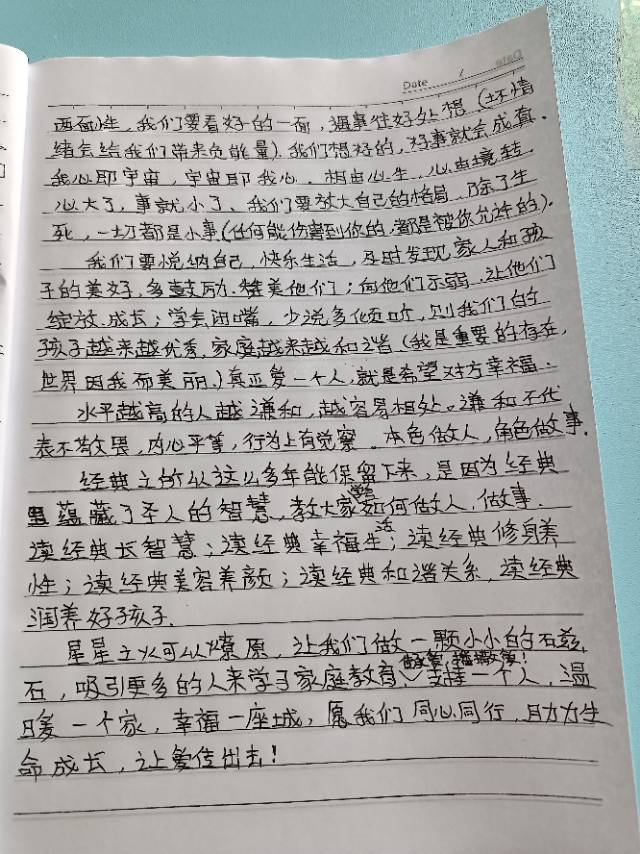 Date /
两面性，我们要看好的一面，遇事往好处想（坏情
绪会给我们带来负能量）。我们想好的，好事就会成真。
我心即宇宙，宇宙即我心。相由心生，心由境转，
心大了，事就小了。我们要放大自己的格局，除了生
死，一切都是小事（任何能伤害到你的，都是被你允许的）。
我们要悦纳自己，快乐生活，及时发现家人和孩
子的美好，多鼓励、赞美他们；向他们示弱，让他们
绽放、成长；学会闭嘴，少说多倾听，则我们的
孩子越来越优秀，家庭越来越和谐（我是重要的存在，
世界因我而美丽。）真正爱一个人，就是希望对方幸福。
水平越高的人越谦和，越容易相处。谦和不代
表不敬畏，内心平等，行为上有觉察。本色做人，角色做事。
经典之所以这么多年能保留下来，是因为经典
蕴藏了圣人的智慧，教大家如何做人、做事。
读经典长智慧；读经典幸福生活；读经典修身养
性；读经典美容养颜；读经典和谐关系，读经典
润养好孩子。
星星之火可以燎原，让我们做一颗小小的石兹
石，吸引更多的人来学习家庭教育，支持一个人，温
暖一个家，幸福一座城，愿我们同心同行，助力生
命成长，让爱传出去！